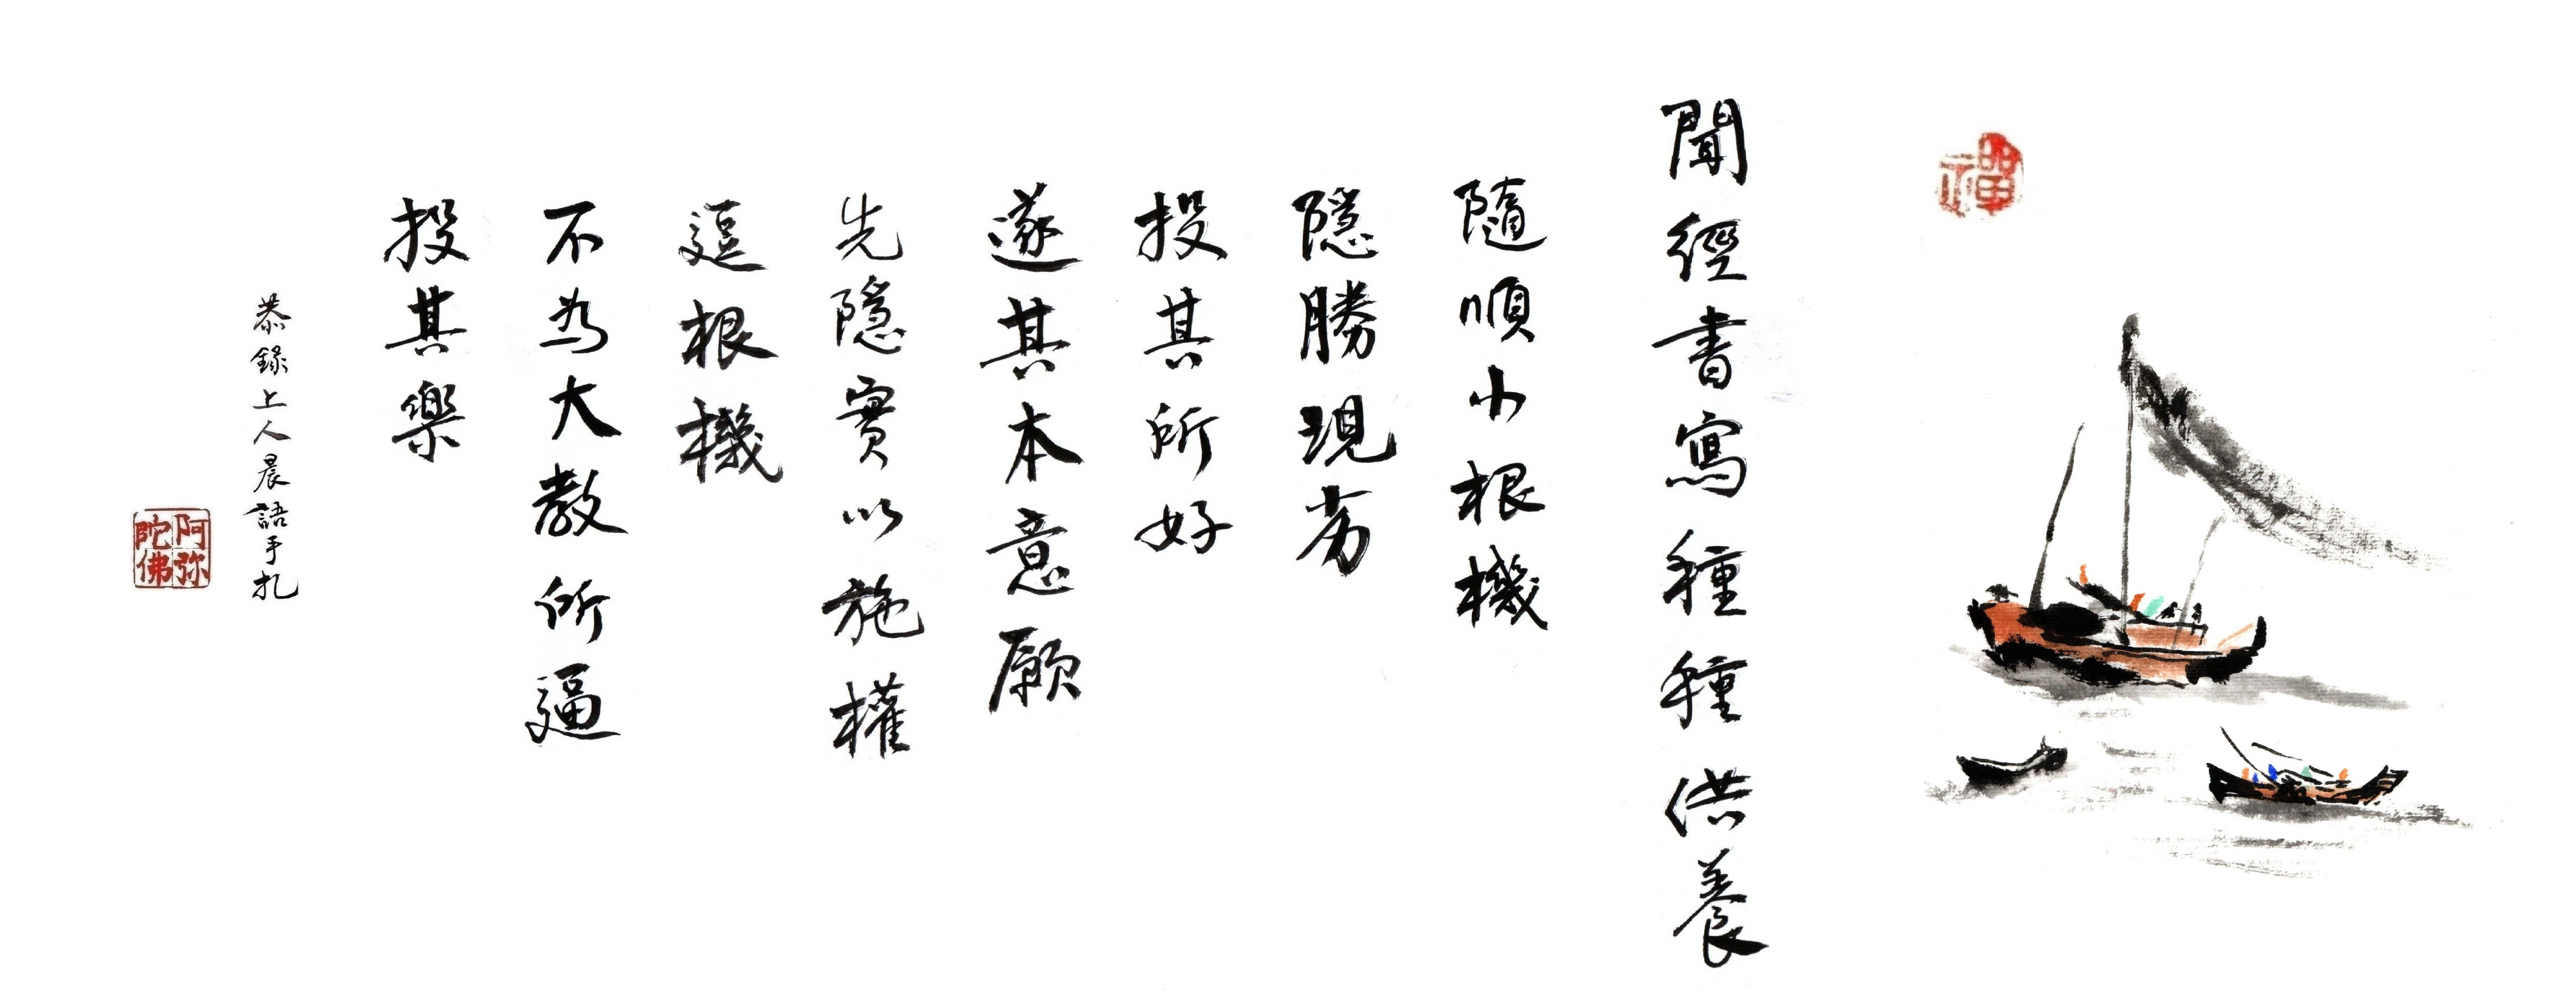 禪
聞經書寫種種供養
隨順小根機
隱勝現劣
投其所好
遂其本意願
先隱實以施權
逗根機
不為大教所逼
投其樂
恭錄上人晨語手扎
阿弥陀佛